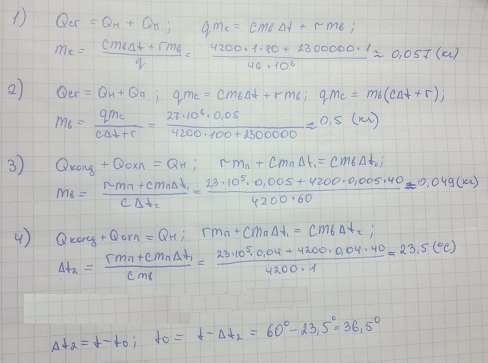 1) Qсг = Qн + Qп ; qmс = cmвΔt + rmв ;
mс = cmвΔt + rmв / q = 4200·1·80 + 2300000·1 / 46·10⁶ ≈ 0,057 (кг)
2) Qсг = Qн + Qп ; qmс = cmвΔt + rmв ; qmс = mв(cΔt + r) ;
mв = qmс / cΔt + r = 27·10⁶·0,05 / 4200·100 + 2300000 ≈ 0,5 (кг)
3) Qконд + Qохл = Qн ; rmп + cmпΔt₁ = cmвΔt₂ ;
mв = rmп + cmпΔt₁ / cΔt₂ = 23·10⁵·0,005 + 4200·0,005·40 / 4200·60 ≈ 0,049 (кг)
4) Qконд + Qохл = Qн ; rmп + cmпΔt₁ = cmвΔt₂ ;
Δt₂ = rmп + cmпΔt₁ / cmв = 23·10⁵·0,04 + 4200·0,04·40 / 4200·1 = 23,5 (°C)
Δt₂ = t - t₀ ; t₀ = t - Δt₂ = 60° - 23,5° = 36,5°